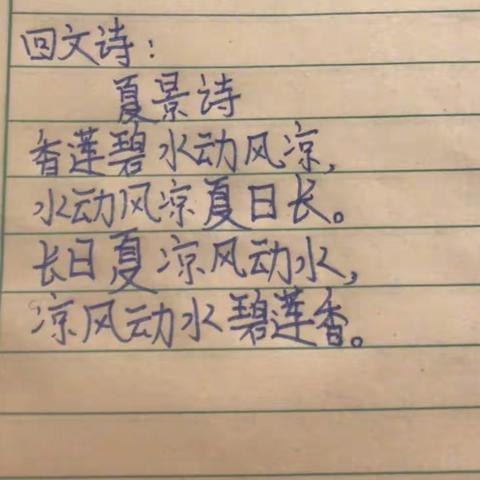 回文诗：
夏景诗
香莲碧水动风凉，
水动风凉夏日长。
长日夏凉风动水，
凉风动水碧莲香。